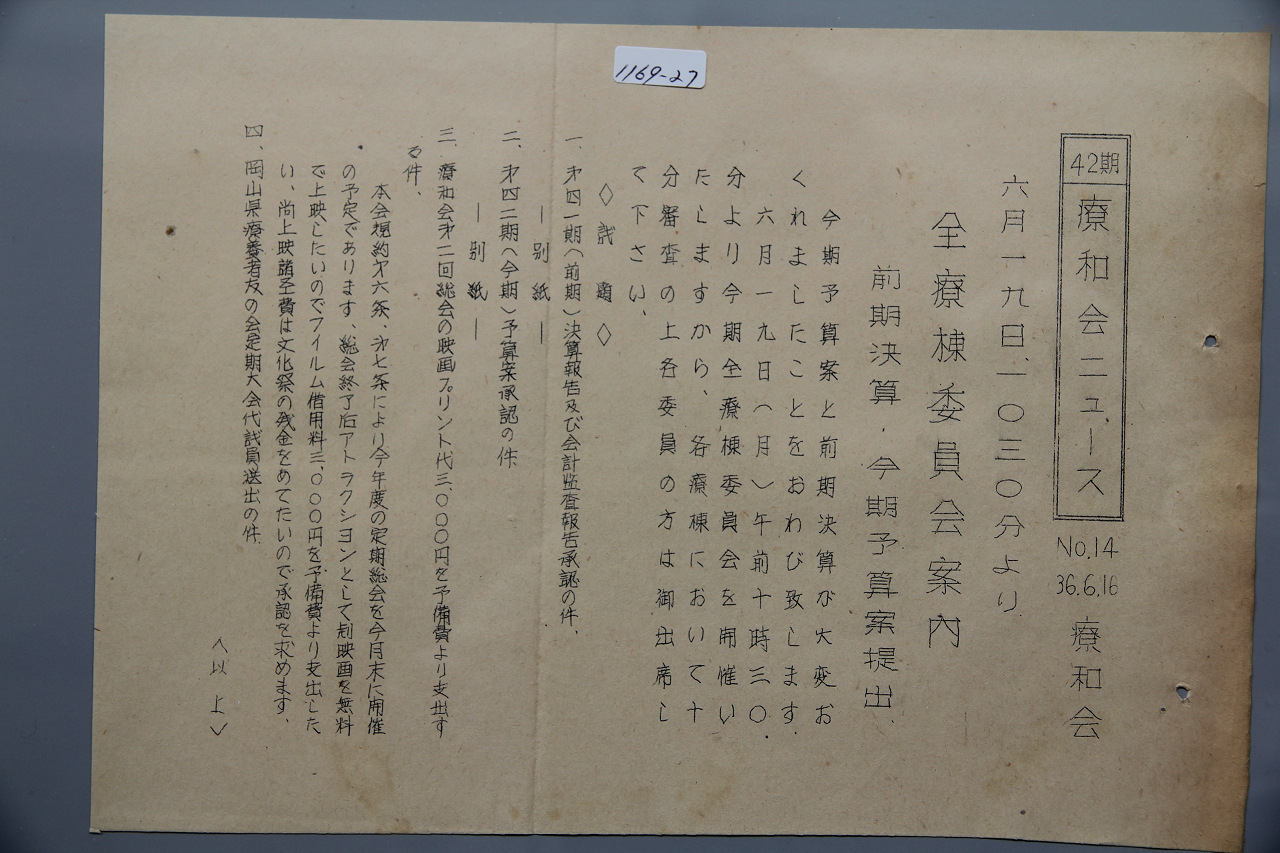 1169-27
42期 療和会ニュース No.14 36.6.16 療和会
六月一九日、一〇三〇分より
全療棟委員会案内
前期決算、今期予算案提出、
今期予算案と前期決算が大変お
くれましたことをおわび致します
六月一九日(月)午前十時三〇.
分より今期全療棟委員会を開催い
たしますから、各療棟において十
分審査の上各委員の方は御出席し
て下さい、
◇試題◇
一、第四一期(前期)決算報告及び会計監査報告承認の件、
―別紙―
二、第四二期(今期)予算案承認の件
―別紙―
三、療和会第二回総会の映画プリント代三、〇〇〇円を予備費より支出す
る件、
本会規約第六条、第七条により今年度の定期総会を今月末に開催
の予定であります、総会終了后アトラクションとして劇映画を無料
で上映したいのでフイルム借用料三、〇〇〇円を予備費より支出した
い、尚上映諸至費は文化祭の残金をめてたいので承認を求めます、
四、岡山県療養者友の会定期大会代試員送出の件
<以上>